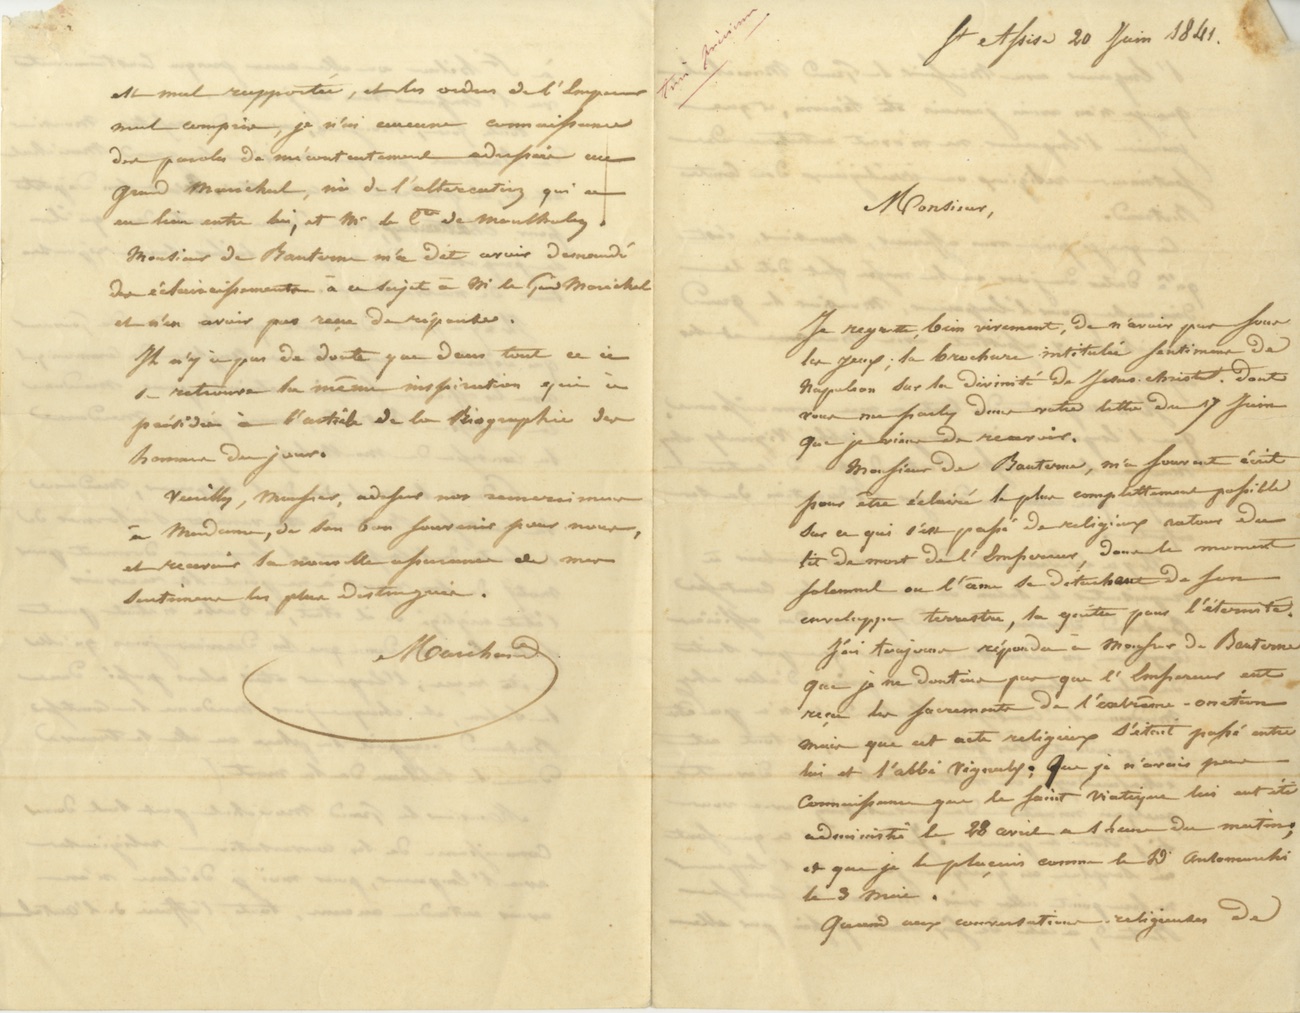 St Assise 20 Juin 1841.
très précieux
Monsieur,
Je regrette, bien vivement, de n'avoir pas sous
les yeux, la brochure intitulée sentimens de
Napoléon sur la divinité de Jésus-christ. dont
vous me parlez dans votre lettre du 17 Juin
que je viens de recevoir.
Monsieur de Bauterne, m'a souvent écrit
pour être éclairé le plus complettement possible
sur ce qui s'est passé de religieux autour du
lit de mort de l'Empereur, dans le moment
solemnel ou l'âme se détachant de son
enveloppe terrestre, la quitte pour l'éternité.
J'ai toujours répondu à Monsieur de Bauterne
que je ne doutais pas que l'Empereur eut
reçu les sacrements de l'extrême-onction
mais que cet acte religieux s'était passé entre
lui et l'abbé Vignaly; que je n'avais pas
connaissance que le saint Viatique lui eut été
administré le 28 avril a 1 heure du matin;
et que je le plaçais comme le Dr Antomarchi
le 3 mai.
Quand aux conversations religieuses de
est mal rapportée, et les ordres de l'Empereur
mal compris, je n'ai aucune connaissance
des paroles de mécontentement adressées au
grand Maréchal, ni de l'altercation qui a
eu lieu entre lui, et Mr le Cte de Montholon.
Monsieur de Bauterne m'a dit avoir demandé
des éclaircissements à ce sujet à Mr le Gd Maréchal
et n'en avoir pas reçu de réponse.
Il n'y a pas de doute que dans tout ce ci
se retrouve la même inspiration qui a
présidée à l'article de la Biographie des
hommes du jour.
Veuillez, Monsieur, adresser nos remercimens
à Madame, de son bon souvenir pour nous,
et recevoir la nouvelle assurance de mes
sentimens les plus distingués.
Marchand